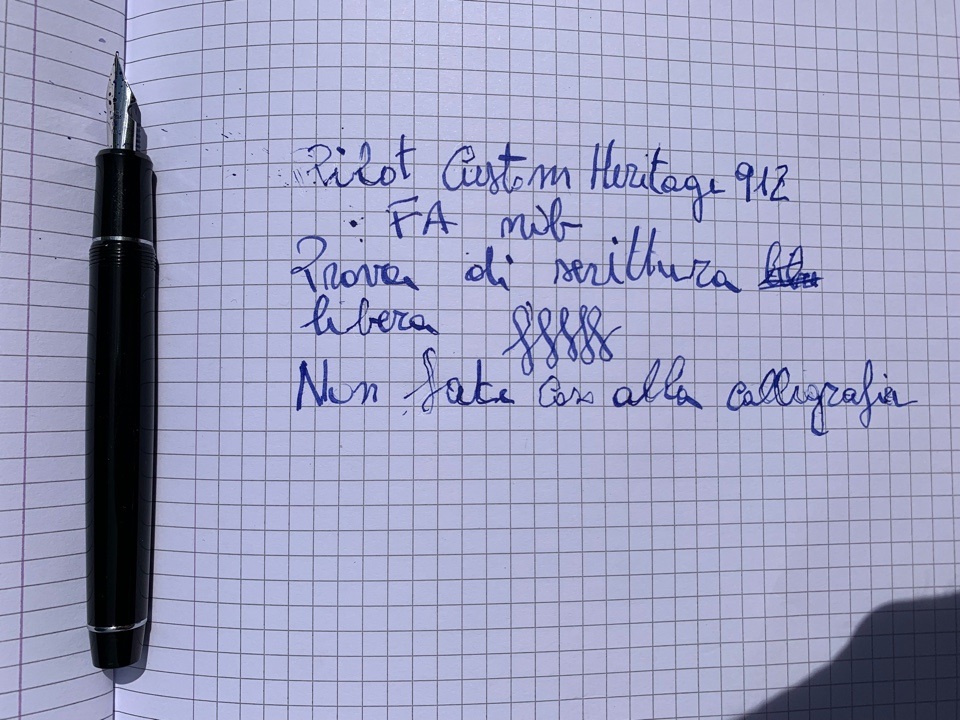 Pilot Custom Heritage 912
FA nib
Prova di scrittura
libera
Non fate caso alla calligrafia